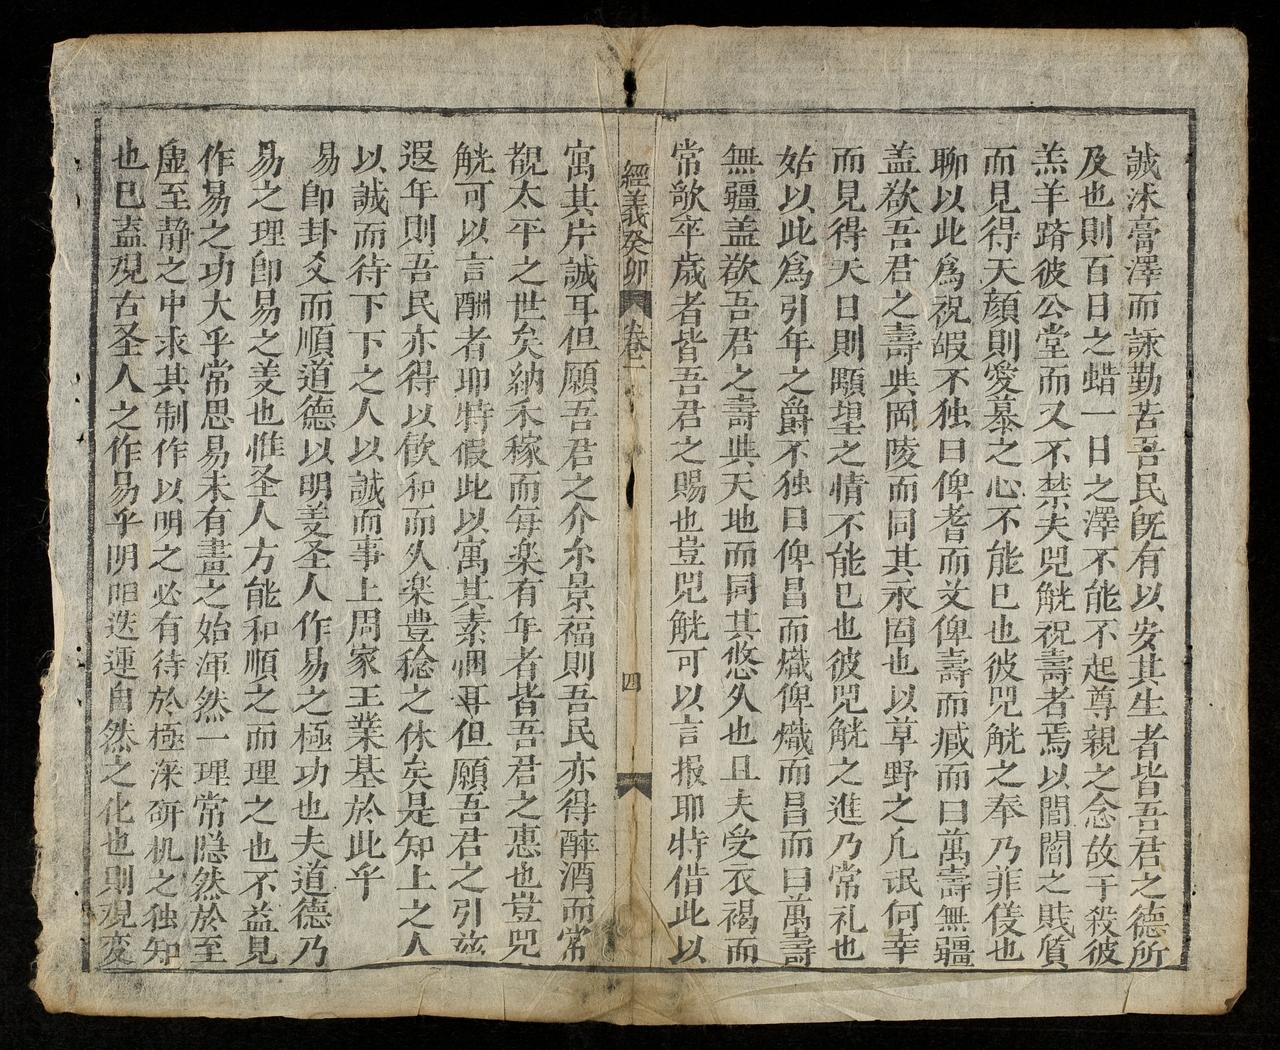 誠沬膏澤而詠勤苦吾民既有以安其生者皆吾君之德所
及也則百日之蜡一日之澤不能不起尊親之念故于殺彼
羔羊躋彼公堂而又不禁夫兕觥祝壽者焉以閭閻之賎質
而見得天顔則愛慕之心不能已也彼兕觥之奉乃菲儀也
聊以此爲祝嘏不独曰俾耆而艾俾壽而臧而曰萬壽無疆
盖欲吾君之壽㒷岡陵而同其永固也以草野之凢氓何幸
而見得天日則顒望之情不能已也彼兕觥之進乃常礼也
姑以此爲引年之爵不独曰俾昌而熾俾熾而昌而曰萬壽
無疆盖欲吾君之壽㒷天地而同其悠久也且夫受衣褐而
常歌卒歲者皆吾君之賜也豈兕觥可以言报耶特借此以
經義癸卯 卷二 四
寓其片誠耳但願吾君之介尒景福則吾民亦得醉酒而常
覩太平之世矣納禾稼而每楽有年者皆吾君之惠也豈兕
觥可以言酬者耶特假此以寓其素悃耳但願吾君之引玆
遐年則吾民亦得以飲和而久楽豊稔之休矣是知上之人
以誠而待下下之人以誠而事上周家王業基於此乎
易卽卦爻而順道德以明羙圣人作易之極功也夫道德乃
易之理卽易之羙也惟圣人方能和順之而理之也不益見
作易之功大乎常思易未有畫之始渾然一理常隠然於至
虚至静之中求其制作以明之必有待於極深研机之独知
也已蓋覌古圣人之作易乎阴阳迭運自然之化也則覌变